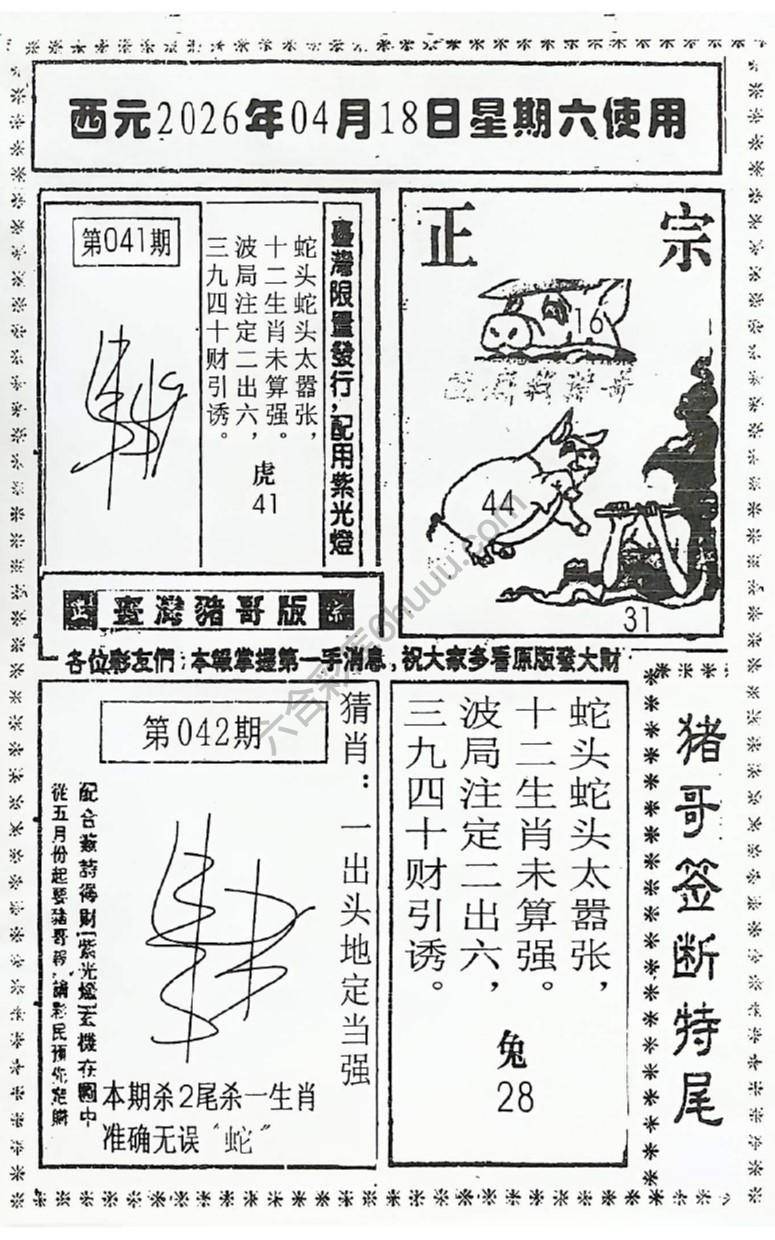 西元2026年04月18日星期六使用
第041期
臺灣限量發行,配用紫光燈
蛇头蛇头太嚣张,
十二生肖未算强。
波局注定二出六,
三九四十财引诱。
虎
41
正宗
16
44
31
正
臺灣豬哥版
宗
各位彩友們:本報掌握第一手消息,祝大家多看原版發大財
第042期
猜肖:一出头地定当强
配合簽詩得財紫光燈玄機在圖中
從五月份起要豬哥報,請彩民預先定購
本期杀2尾杀一生肖
准确无误“蛇”
蛇头蛇头太嚣张,
十二生肖未算强。
波局注定二出六,
三九四十财引诱。
兔
28
猪哥签断特尾
六合彩店6huuu.com